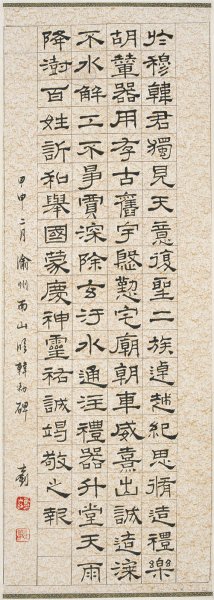 於穆韓君獨見天意復聖二族逴越紀思脩造禮樂
胡輦器用存古舊宇慇懃宅廟朝車威熹出誠造漆
不水解工不爭賈深除玄汙水通注禮器升堂天雨
降澍百姓訢和舉國蒙慶神靈祐誠竭敬之報
甲申二月渝州雨山臨韓勑碑